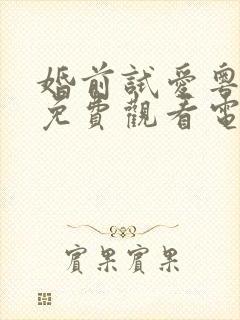 婚前試愛粵
免費觀看電
賓果賓果